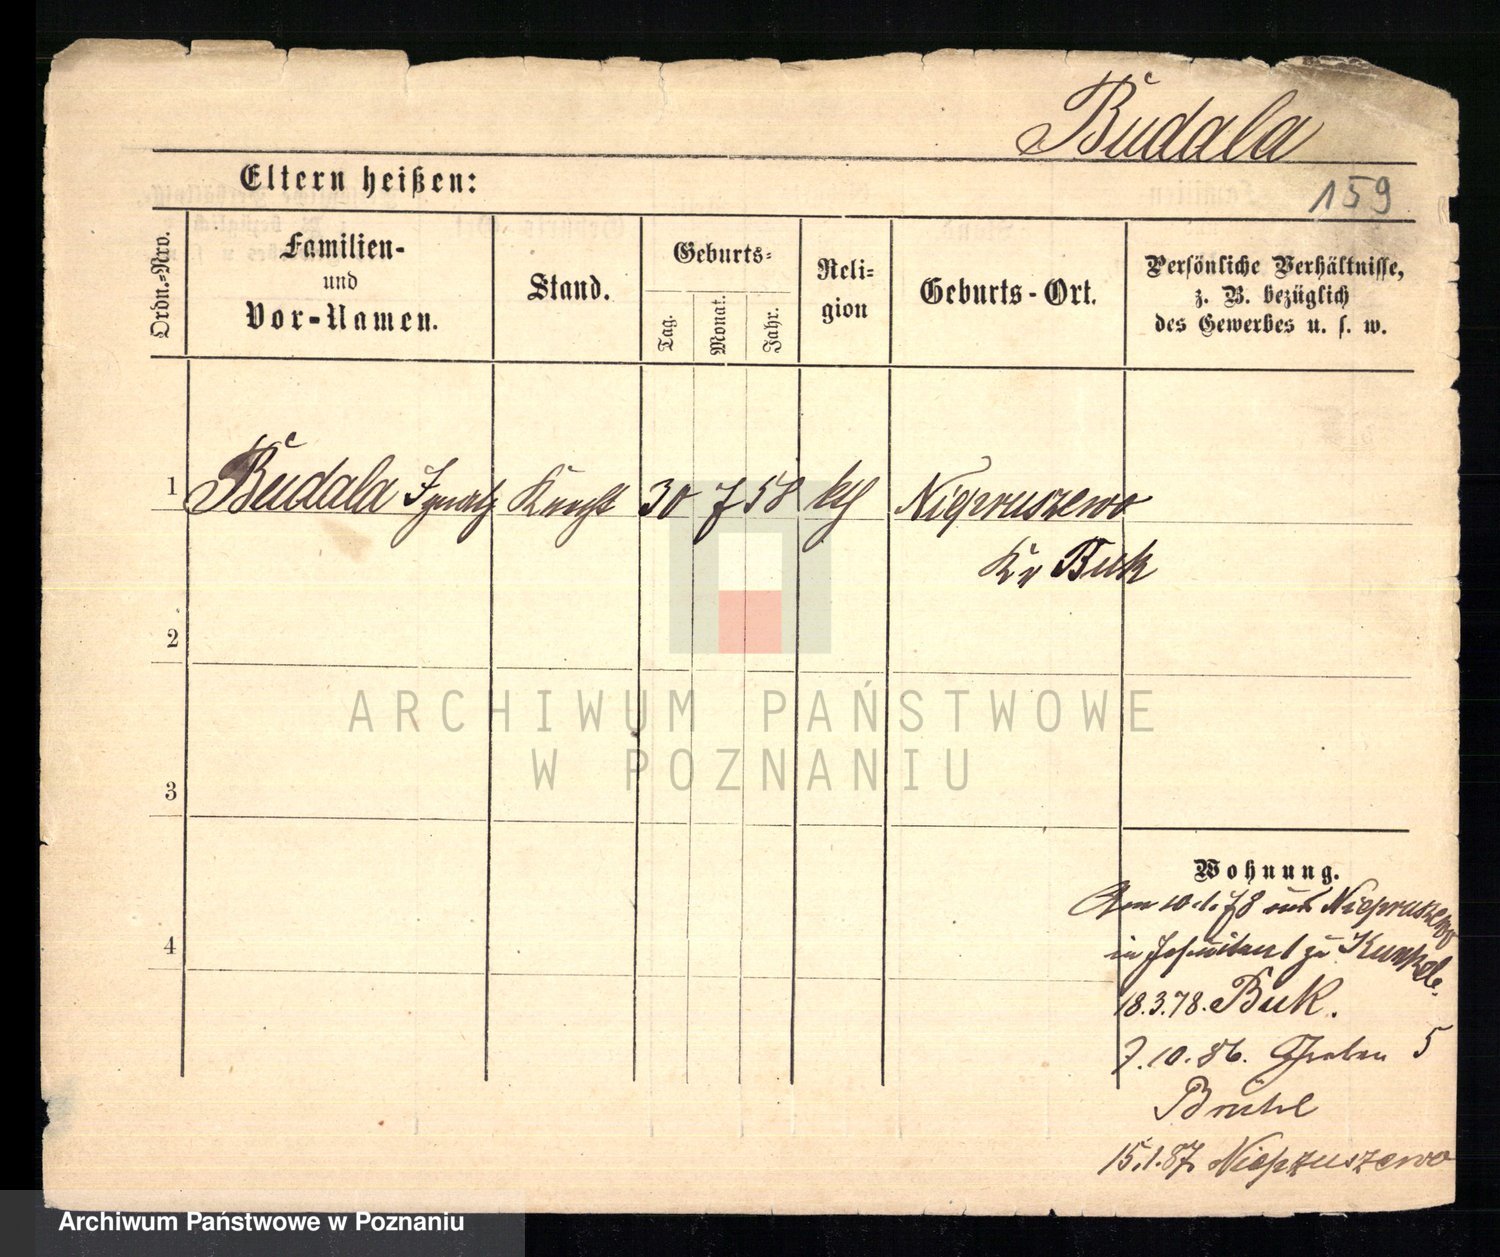 Budala
Eltern heißen:
159
Ordn.-Nro.
Familien-
und
Vor-Namen.
Stand.
Geburts-
Tag.
Monat.
Jahr.
Reli-
gion
Geburts-Ort.
Persönliche Verhältnisse,
z. B. bezüglich
des Gewerbes u. s. w.
1 Budala Ignatz Knecht 30 7 58 kth Niepruszewo
Kr Buk
2
3
4
ARCHIWUM PAŃSTWOWE
W POZNANIU
Wohnung.
Am 10.1.78 aus Niepruszewo
in zu Kunkel.
18.3.78. Buk.
7.10.86. Graben 5
Brühl
15.1.87. Niepruszewo
Archiwum Państwowe w Poznaniu